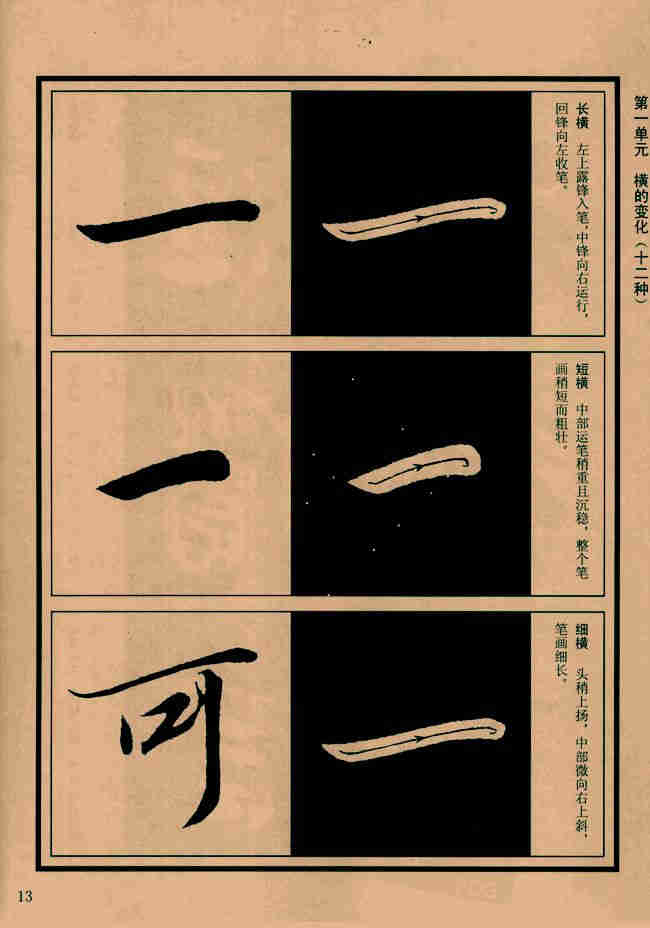 第一单元　横的变化（十二种）
长横　左上露锋入笔，中锋向右运行，
回锋向左收笔。
一
短横　中部运笔稍重且沉稳，整个笔
画稍短而粗壮。
一
细横　头稍上扬，中部微向右上斜，
笔画细长。
可
13